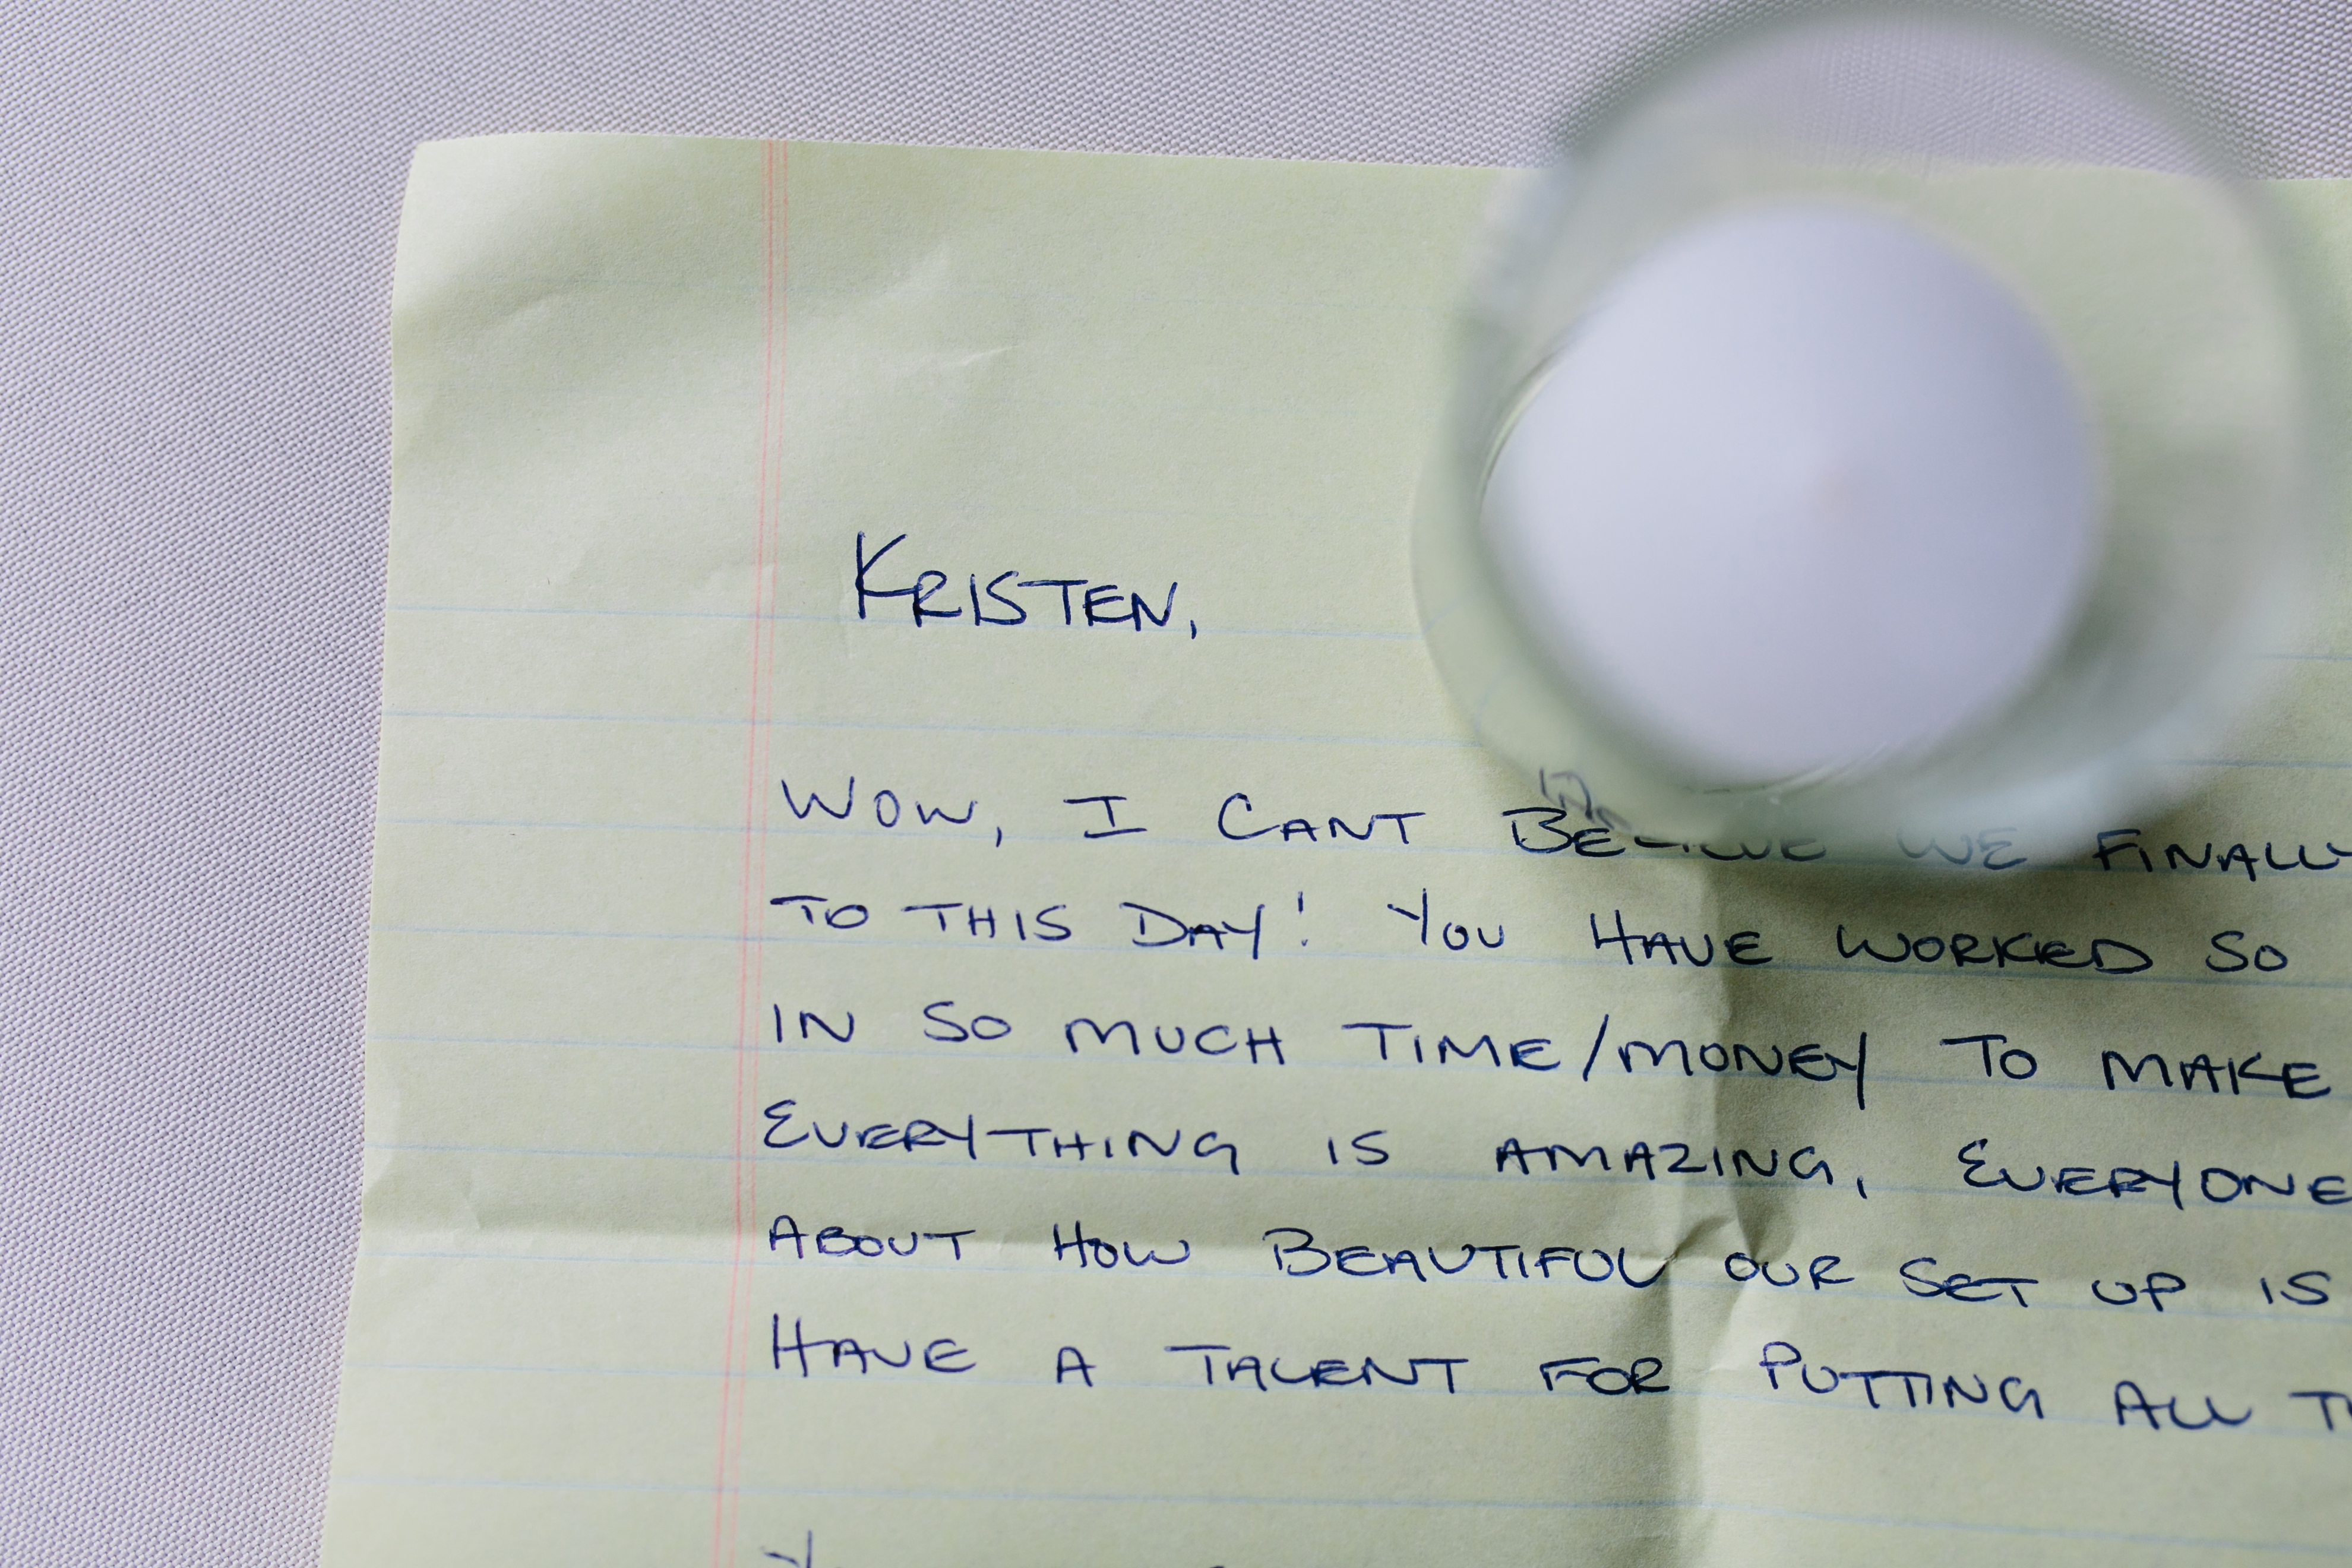 KRISTEN,
WOW, I CANT BELIEVE WE FINALLY
TO THIS DAY! YOU HAVE WORKED SO
IN SO MUCH TIME/MONEY TO MAKE
EVERYTHING IS AMAZING, EVERYONE
ABOUT HOW BEAUTIFUL OUR SET UP IS
HAVE A TALENT FOR PUTTING ALL